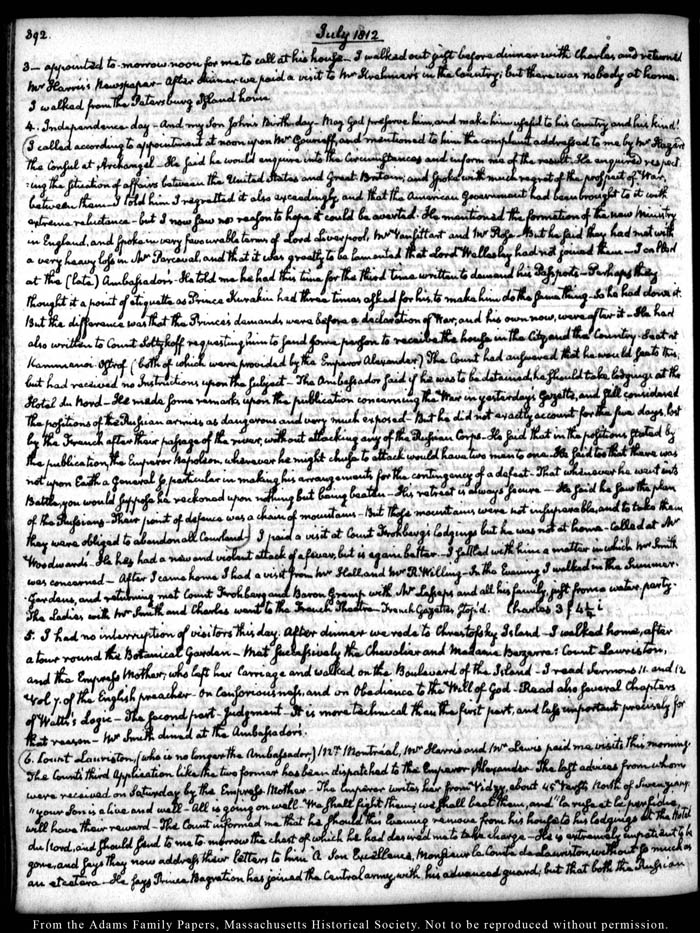 392.
July 1812
3— appointed to-morrow noon for me to call at his house— I walked out just before dinner with Charles and returned
Mr Harris's Newspaper— After dinner we paid a visit to Mr Krehmer's in the Country; but there was nobody at home.
I walked from the Petersburg Island home
4. Independence day— And my Son John's Birth-day— May God preserve him, and make him useful to his Country and his kind!
I called according to appointment at noon upon Mr Gourieff, and mentioned to him the complaint addressed to me by Mr Hazard
the Consul at Archangel— He said he would enquire into the Circumstances and inform me of the result. He enquired respect-
-ing the situation of affairs between the United States and Great-Britain; and spoke with much regret of the prospect of War,
between them— I told him I regretted it also exceedingly, and that the American Government had been brought to it with
extreme reluctance— but I now saw no reason to hope it could be averted. He mentioned the formation of the new Ministry
in England, and spoke in very favourable terms of Lord Liverpool, Mr Vansittart and Mr Rose— But he said they had met with
a very heavy loss in Mr Perceval, and that it was greatly to be lamented that Lord Wellesley had not joined them— I called
at the (late) Ambassador's— He told me he had this time for the third time written to demand his Passports— Perhaps they
thought it a point of etiquette as Prince Kurakin had three times asked for his, to make him do the same thing— So he had done it.
But the difference was that the Prince's demands were before a declaration of War, and his own now, were after it— He had
also written to Count Soltykoff requesting him to send some person to receive the house in the City and the Country-Seat at
Kammenoi-Ostrof (both of which were provided by the Emperor Alexander) The Count had answered that he would see to this,
but had received no Instructions upon the subject— The Ambassador said if he was to be detained he should take lodgings at the
Hotel du Nord— He made some remarks upon the publication concerning the War in yesterday's Gazette, and still considered
the positions of the Russian armies as dangerous and very much exposed— But he did not exactly account for the five days, lost
by the French after their passage of the river, without attacking any of the Russian Corps— He said that in the positions stated by
the publication, the Emperor Napoleon, whenever he might chuse to attack would have two men to one— He said too that there was
not upon Earth a General so particular in making his arrangements for the contingency of a defeat— That whenever he went into
Battle, you would suppose he reckoned upon nothing but being beaten— His retreat is always secure— He said he saw the plan
of the Russians— Their point of defence was a chain of mountains— But those mountains were not insuperable, and to take them
they were obliged to abandon all Courland) I paid a visit at Count Frohberg's lodgings but he was not at home— Called at Mr
Woodward's. He has had a new and violent attack of a fever, but is again better— I settled with him a matter in which Mr Smith
was concerned— After I came home I had a visit from Mr Hall and Mr R. Willing— In the Evening I walked in the Summer-
Gardens, and returning met Count Frohberg and Baron Gremp with Mr Lesseps and all his family, just from a water party—
The Ladies with Mr Smith and Charles went to the French Theatre— French Gazettes stop'd. Charles 3 f 4½ i
5. I had no interruption of visitors this day. After dinner we rode to Chrestofsky Island— I walked home, after
a tour round the Botanical Garden— Met successively the Chevalier and Madame Bezerra: Count Lauriston,
and the Empress Mother, who left her Carriage and walked on the Boulevard of the Island— I read Sermons 11. and 12
Vol. 7. of the English preacher— On Censoriousness, and on Obedience to the Will of God— Read also several Chapters
of Watts's Logic— The second part— Judgment— It is more technical than the first part, and less important precisely for
that reason— Mr Smith dined at the Ambassador's.
6. Count Lauriston, (who is no longer the Ambassador) Mr Montréal, Mr Harris and Mr Lewis paid me visits this morning
The Count's third Application like the two former has been dispatched to the Emperor Alexander— The last advices from whom
were received on Saturday by the Empress Mother— The Emperor writes her from Vidzy, about 45 Versts North of Swenziany.
"your Son is alive and well— All is going on well. We shall fight them; we shall beat them, and" la ruse et la perfidie,
will have their reward— The Count informed me that he should this Evening remove from his house to his lodgings at the Hotel
du Nord, and should send to me to-morrow the chest of which he had desired me to take charge— He is extremely impatient to be
gone, and says they now address their letters to him "A Son Excellence, Monsieur le Comte de Lauriston, without so much as
an etcetera— He says Prince Bagration has joined the Central army, with his advanced guard; but that both the Russian
From the Adams Family Papers, Massachusetts Historical Society. Not to be reproduced without permission.